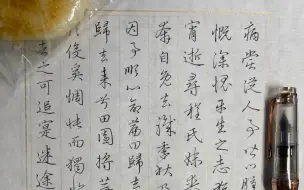 病嘗從人事皆口腹
慨深愧平生之志猶
宵逝尋程氏妹喪
奔自免去職季秋及
因事順心命篇曰歸去
歸去來兮田園將蕪
役奚惆悵而獨
者之可追寔迷途